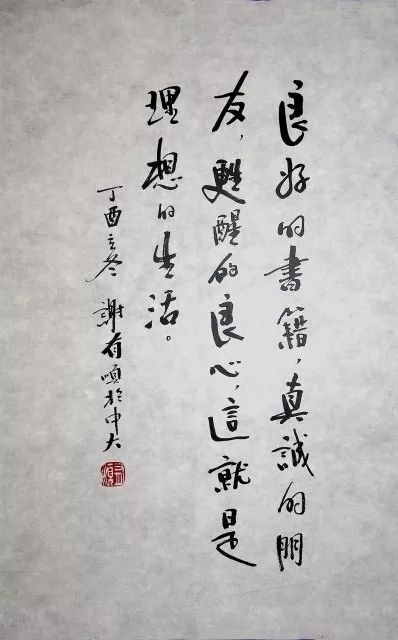 良好的書籍，真誠的朋
友，甦醒的良心，這就是
理想的生活。
丁酉立冬 謝有順於中大
有順